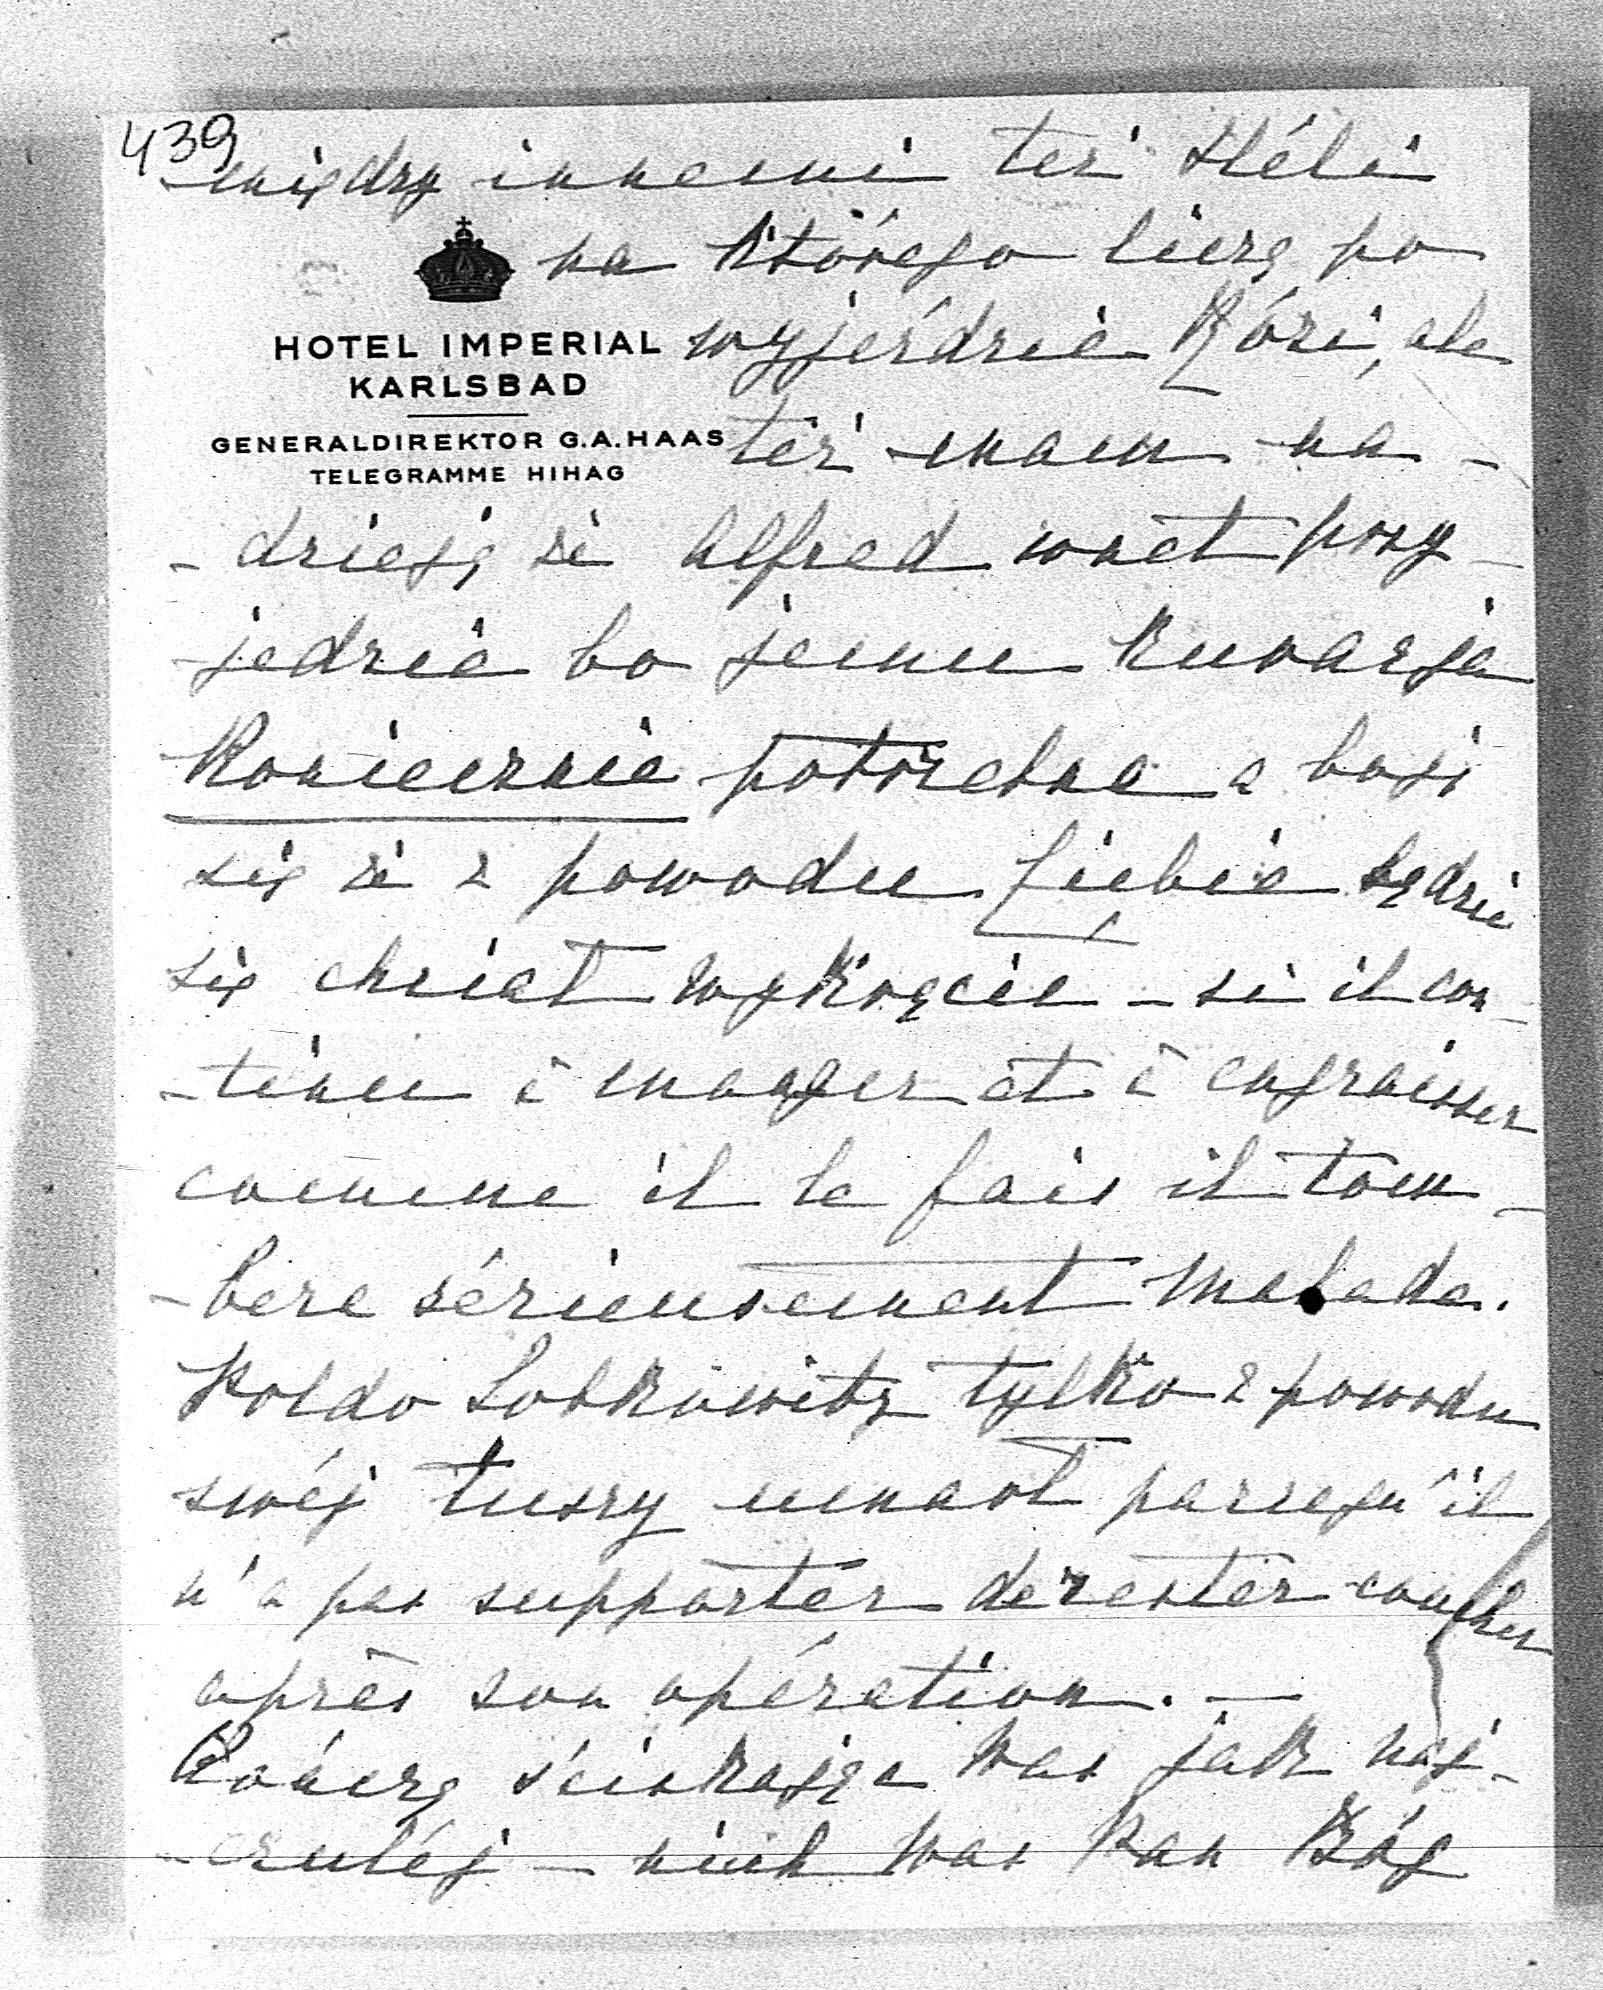 439
między innemi też Héli
na którego liczę po
HOTEL IMPERIAL
KARLSBAD
GENERALDIREKTOR G.A.HAAS
TELEGRAMME HIHAG
wyjeździe Rózi, ale
też mam na-
-dzieję że Alfred wnet przy-
-jedzie bo jemu kuracja
koniecznie potrzebna a boję
się że z powodu Ciebie będzie
się chciał wykręcić - si il con-
-tinue à manger et à engraisser
comme il le fais il tom-
-bera sérieusement malade.
Poldo Lobkowitz tylko z powodu
swéj tuszy umarł parcequ'il
n'a pas supporter de rester coucher
après son opération. —
Kończę ściskając Was jak naj-
-czuléj - niech Was Pan Bóg